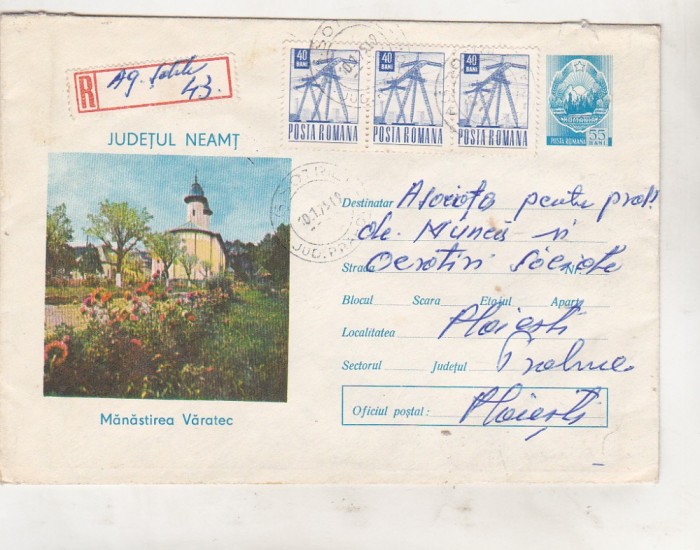 R Ag. 
43.
40 BANI POSTA ROMANA
40 BANI POSTA ROMANA
40 BANI POSTA ROMANA
POSTA ROMANA 55 BANI
JUDEȚUL NEAMȚ
Destinatar Asociația pentru prob.
de Muncă și
Strada Ocrotiri Sociale Nr.
Blocul Scara Etajul Apart.
Localitatea Ploiești
Sectorul Județul Prahova
Oficiul poștal: Ploiești
Mănăstirea Văratec